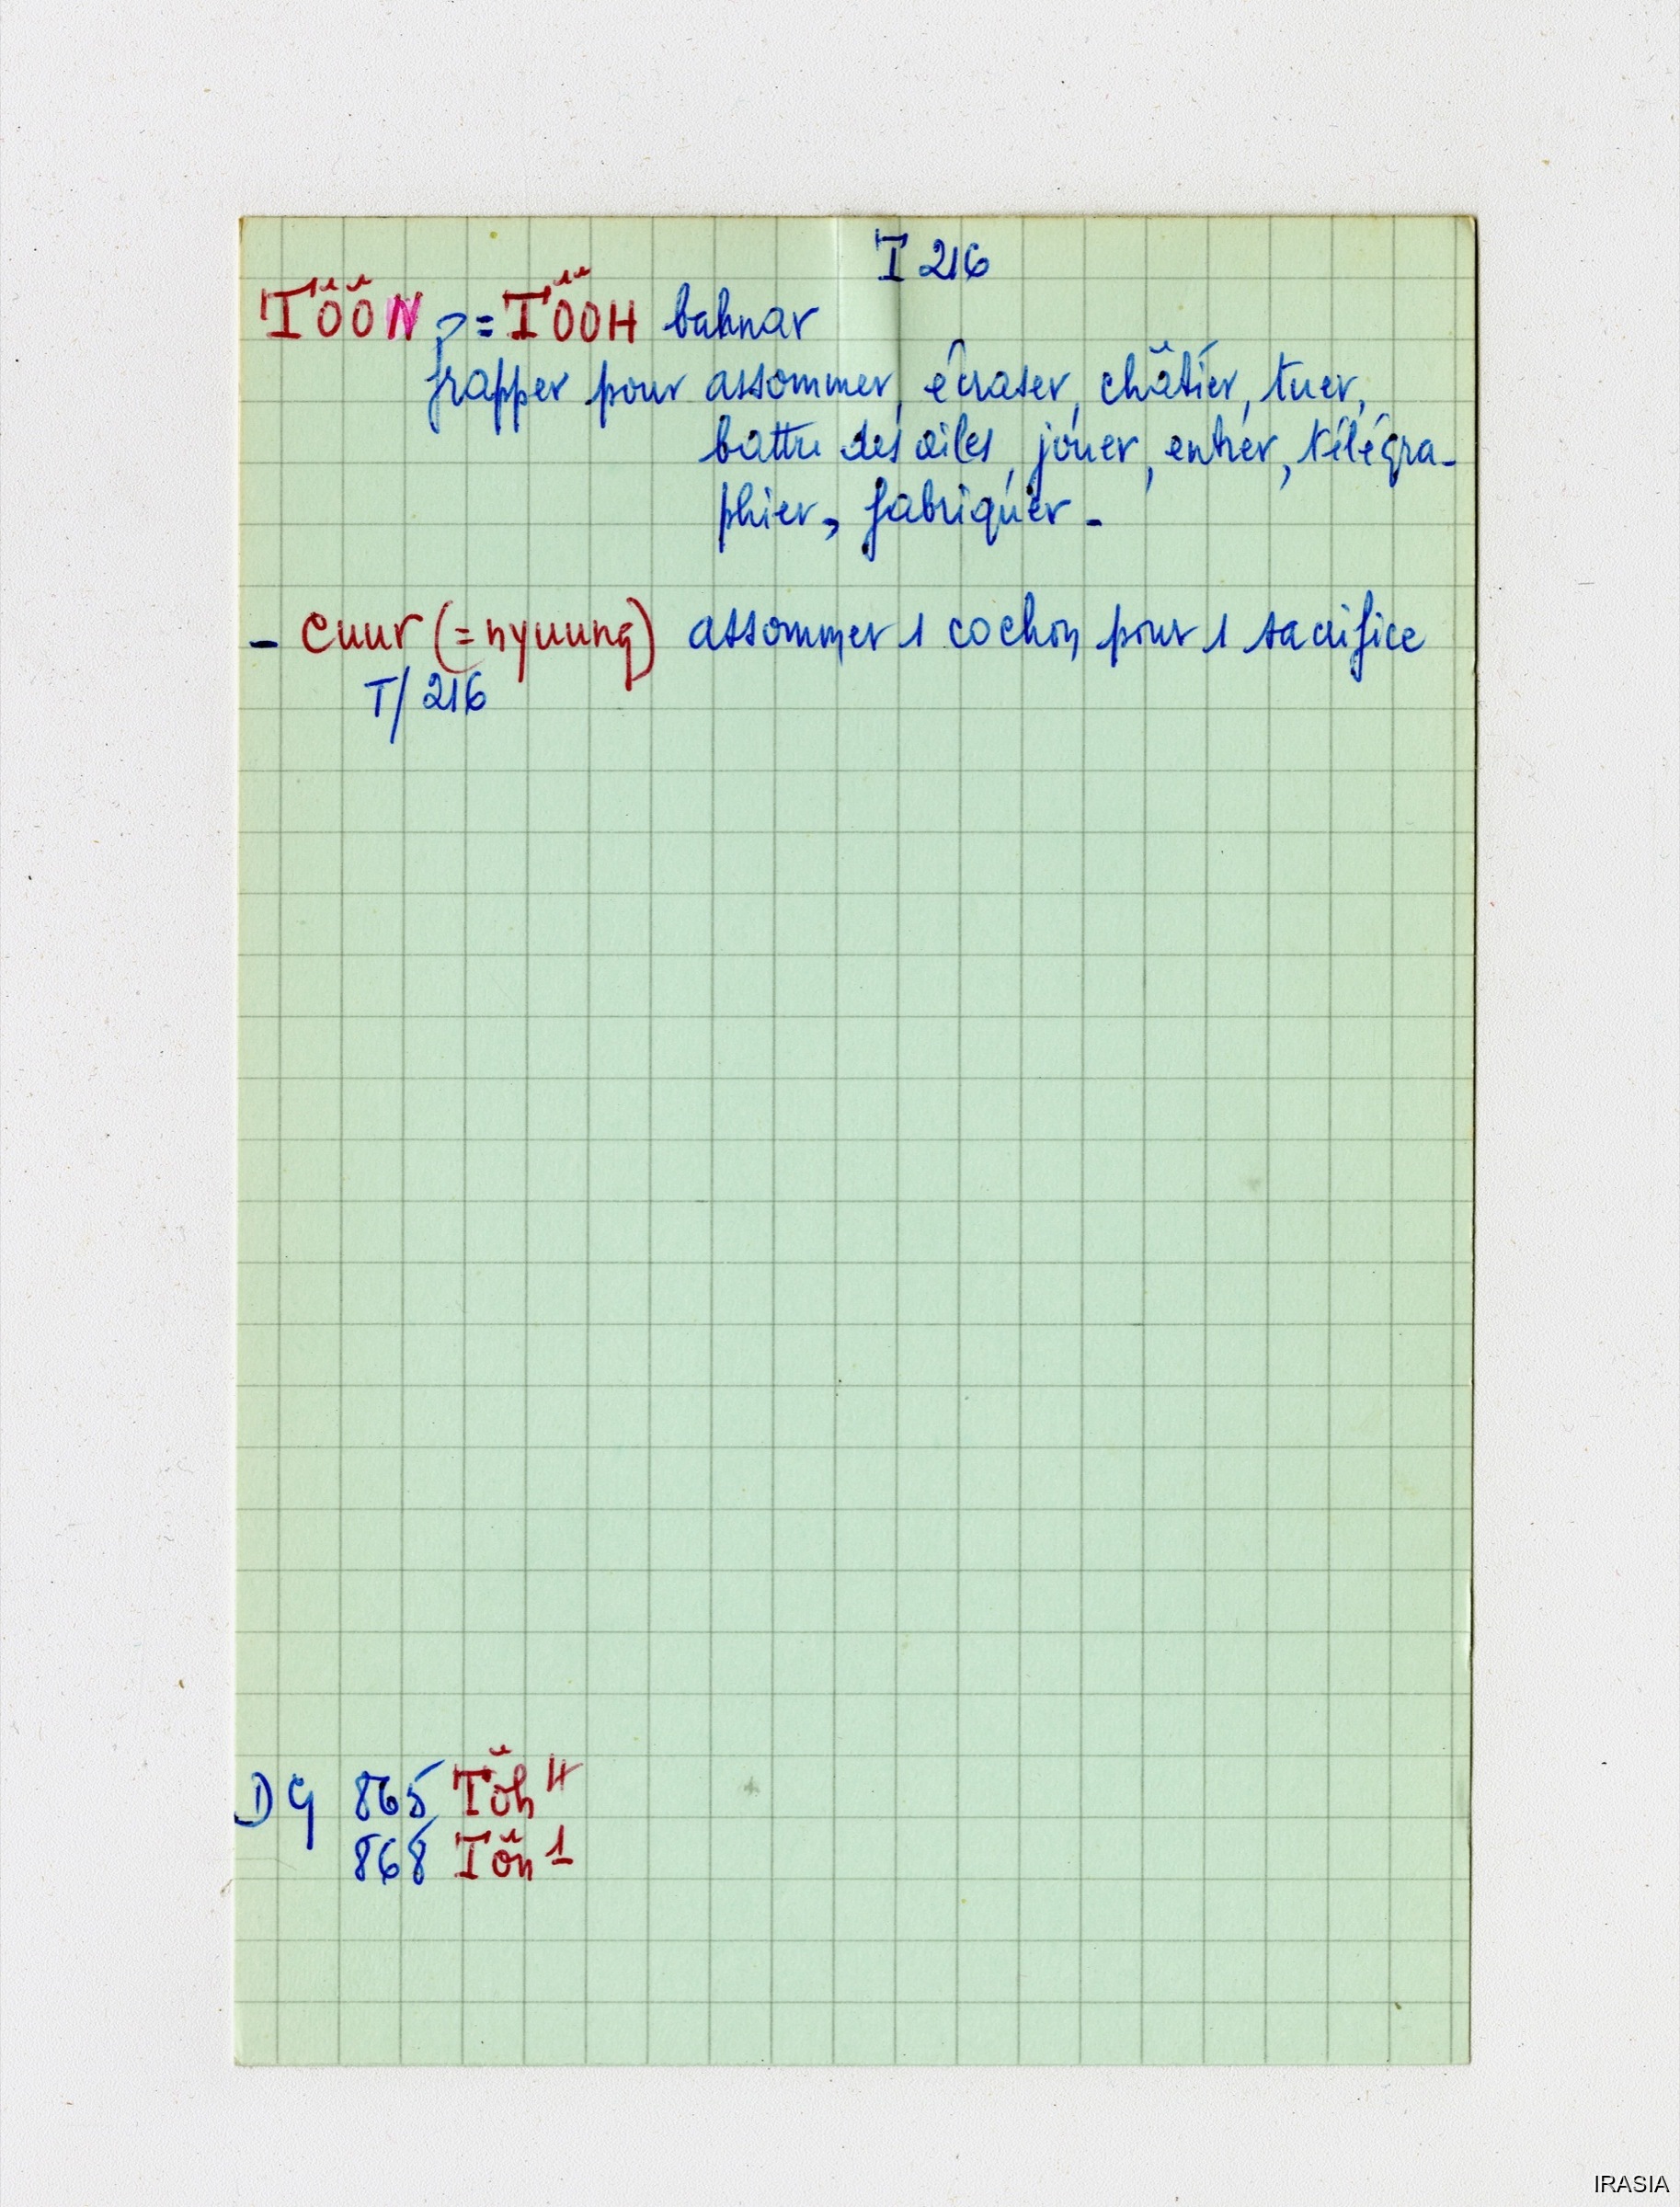 T 216
TÖÖN = TÖÖH bahnar
frapper pour assommer, écraser, châtier, tuer,
battre des ailes, jouer, entrer, télégra-
phier, fabriquer -
- cuur (= nyuung) assommer 1 cochon pour 1 sacrifice
T/216
DG 865 Töh 4
868 Tön 1
IRASIA